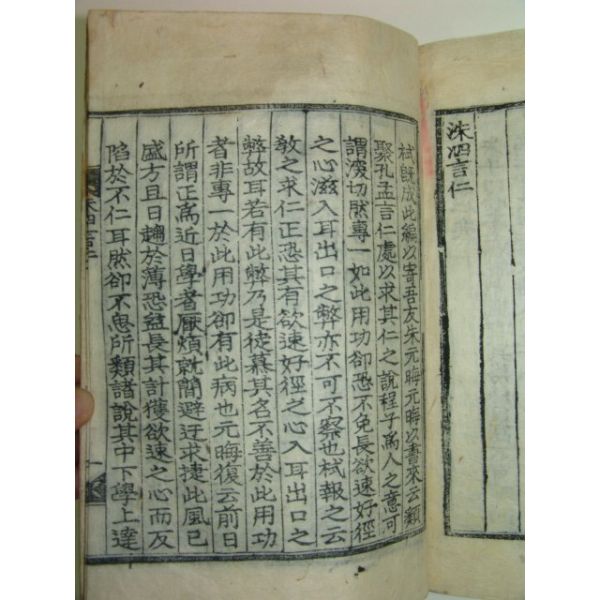 洙泗言仁
栻旣成此編以寄吾友朱元晦元晦以書來云類
聚孔孟言仁處以求其仁之說程子爲人之意可
謂深切然專一如此用功却恐不免長欲速好徑
之心滋入耳出口之弊亦不可不察也栻報之云
敎之求仁正恐其有欲速好徑之心入耳出口之
弊故耳若有此弊乃是徒慕其名不善於此用功
者非專一於此用功却有此病也元晦復云前日
所謂正爲近日學者厭煩就簡避迂求捷此風已
盛方且日趨於薄恐益長其計獲欲速之心而反
陷於不仁耳然却不思所類諸說其中下學上達
一